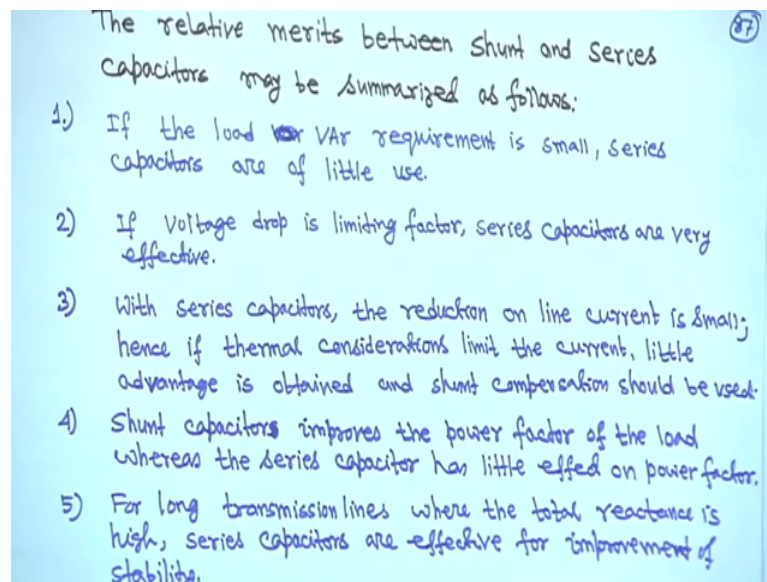 The relative merits between shunt and series
87
capacitors may be summarized as follows:
1.) If the load VAr requirement is small, series
capacitors are of little use.
2) If voltage drop is limiting factor, series capacitors are very
effective.
3) With series capacitors, the reduction on line current is small;
hence if thermal considerations limit the current, little
advantage is obtained and shunt compensation should be used.
4) Shunt capacitors improves the power factor of the load
whereas the series capacitor has little effect on power factor.
5) For long transmission lines where the total reactance is
high, series capacitors are effective for improvement of
stability.